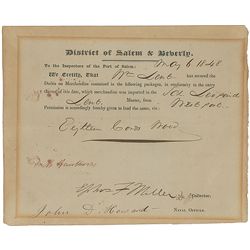 District of Salem & Beverly.
To the Inspectors of the Port of Salem: May 6 1848
We Certify, That Wm Lent has secured the
Duties on Merchandise contained in the following packages, in conformity to the entry
thereof this date, which merchandise was imported in the Sch
Lent Master, from
Permission is accordingly hereby given to land the same, viz:
Eighteen Cords Wood
Ephm F. Miller Collector,
John D Howard Naval Officer.